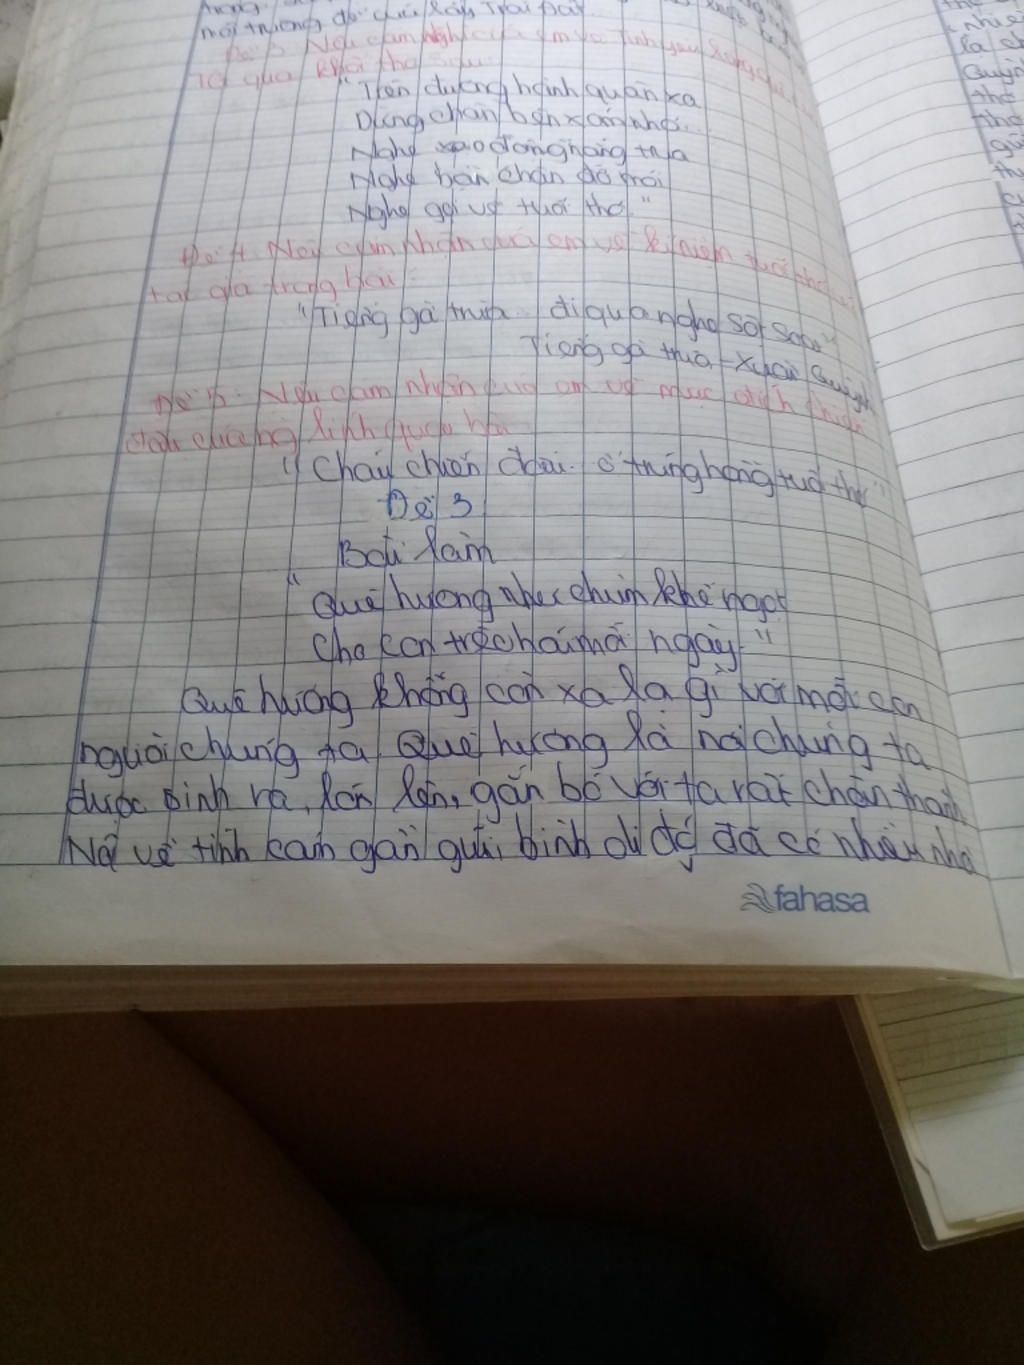 môi trường để cứu lấy Trái Đất.
Đề 3: Nêu cảm nghĩ của em về tình yêu
qua khổ thơ sau:
"Trên đường hành quân xa
Dừng chân bên xóm nhỏ
Nghe xao động nắng trưa
Nghe bàn chân đỡ mỏi
Nghe gọi về tuổi thơ"
Đề 4: Nêu cảm nhận của em về kỉ niệm tuổi thơ
tác giả trong bài:
"Tiếng gà trưa... đi qua nghe sột soạt"
Tiếng gà trưa - Xuân Quỳnh
Đề 5: Nêu cảm nhận của em về mục đích chiến
đấu của người lính qua bài
"Cháu chiến đấu... ổ trứng hồng tuổi thơ"
Đề 3
Bài làm
"Quê hương như chùm khế ngọt
Cho con trèo hái mỗi ngày"
Quê hương không còn xa lạ gì với mỗi con
người chúng ta. Quê hương là nơi chúng ta
được sinh ra, lớn lên, gắn bó với ta rất chân thành
Nói về tình cảm gần gũi, bình dị đó đã có nhiều nhà
fahasa